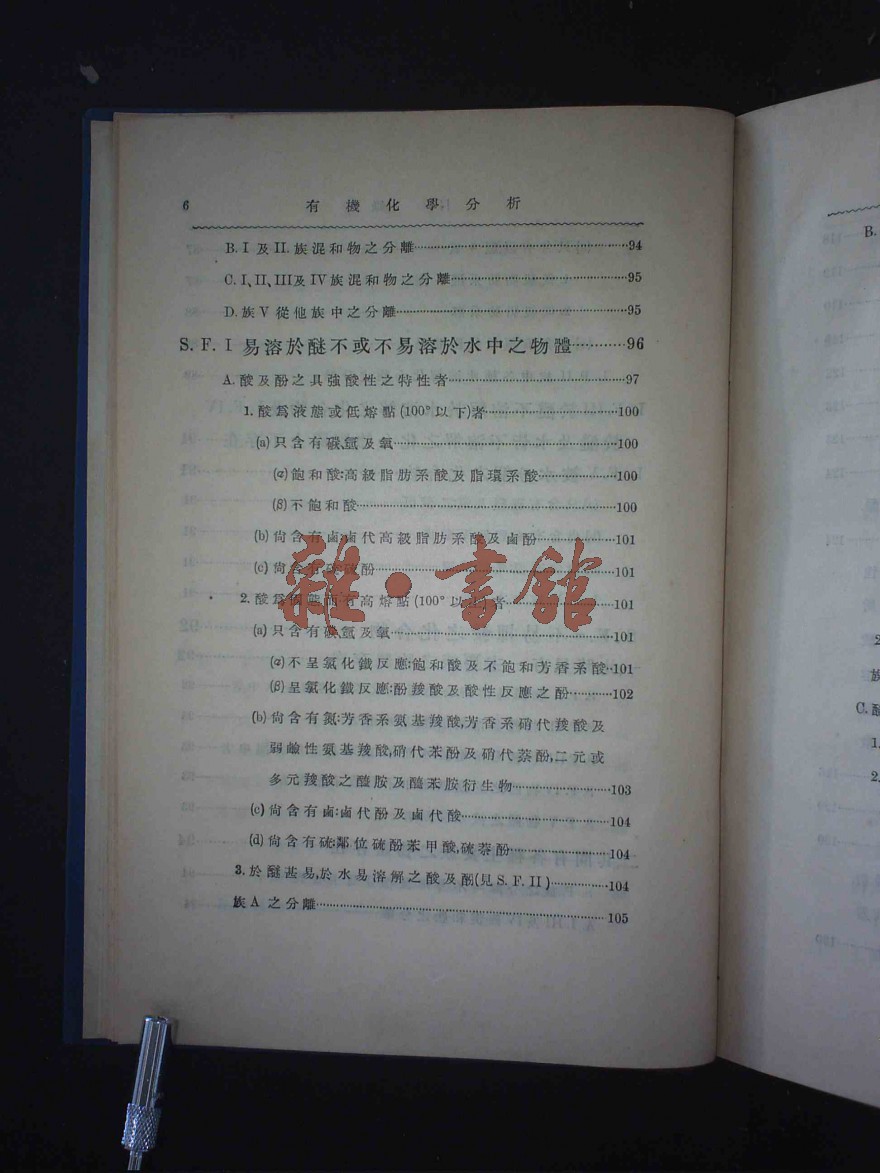 6 有機化學分析
B. I 及 II. 族混和物之分離……94
C. I、II、III及 IV 族混和物之分離……95
D. 族 V 從他族中之分離……95
S. F. I 易溶於醚不或不易溶於水中之物體……96
A. 酸及酚之具強酸性之特性者……97
1. 酸爲液態或低熔點(100°以下)者……100
(a) 只含有碳、氫及氧……100
(α) 飽和酸:高級脂肪系酸及脂環系酸……100
(β) 不飽和酸……100
(b) 尙含有鹵:鹵代高級脂肪系酸及鹵酚……101
(c) 尙含有硫:硫酚……101
2. 酸爲固態而有高熔點(100°以上)者……101
(a) 只含有碳、氫及氧……101
(α) 不呈氯化鐵反應:飽和酸及不飽和芳香系酸……101
(β) 呈氯化鐵反應:酚羧酸及酸性反應之酚……102
(b) 尙含有氮:芳香系氨基羧酸,芳香系硝代羧酸及
弱鹼性氨基羧酸,硝代苯酚及硝代萘酚,二元或
多元羧酸之醯胺及醯苯胺衍生物……103
(c) 尙含有鹵:鹵代酚及鹵代酸……104
(d) 尙含有硫:鄰位硫酚苯甲酸,硫萘酚……104
3. 於醚甚易,於水易溶解之酸及酚(見 S. F. II)……104
族 A 之分離……105
雜·書館
B.
C.
1.
2.